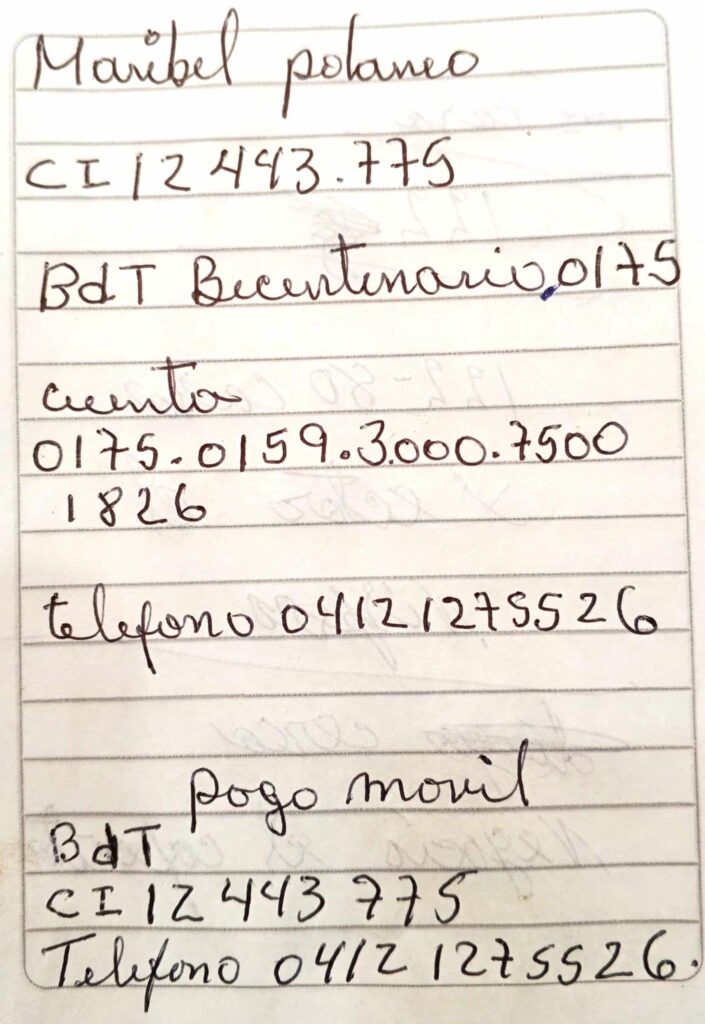 Maribel polanco
CI 12 443.775
BdT Bicentenario, 0175
cuenta
0175.0159.3.000.7500
1826
telefono 04121275526
pago movil
BdT
CI 12 443 775
Telefono 0412 1275526.